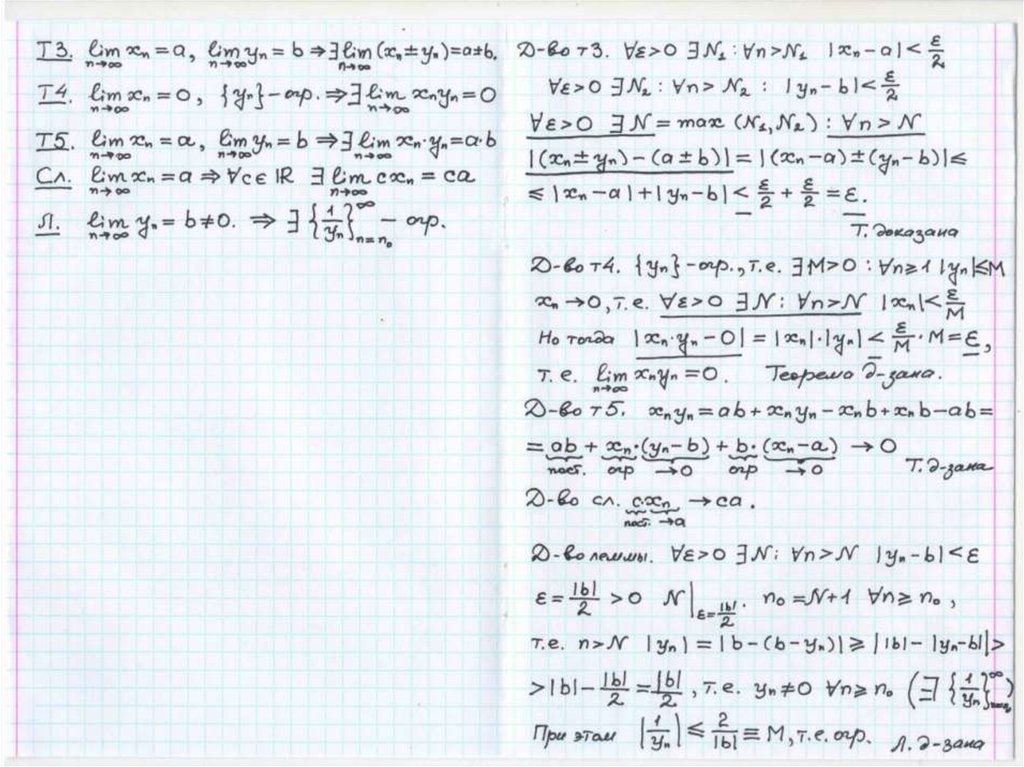 Т3. lim xₙ = a, lim yₙ = b ⇒ ∃ lim (xₙ ± yₙ) = a ± b.
n→∞ n→∞ n→∞
Т4. lim xₙ = 0, {yₙ} – огр. ⇒ ∃ lim xₙyₙ = 0
n→∞ n→∞
Т5. lim xₙ = a, lim yₙ = b ⇒ ∃ lim xₙ·yₙ = a·b
n→∞ n→∞ n→∞
Сл. lim xₙ = a ⇒ ∀c∈ℝ ∃ lim cxₙ = ca
n→∞ n→∞
Л. lim yₙ = b ≠ 0. ⇒ ∃ {1/yₙ}∞ₙ₌ₙ₀ – огр.
n→∞
Д-во т3. ∀ε>0 ∃N₁ : ∀n>N₁ |xₙ – a| < ε/2
∀ε>0 ∃N₂ : ∀n>N₂ : |yₙ – b| < ε/2
∀ε>0 ∃N = max (N₁, N₂) : ∀n > N
|(xₙ ± yₙ) – (a ± b)| = |(xₙ – a) ± (yₙ – b)| ≤
≤ |xₙ – a| + |yₙ – b| < ε/2 + ε/2 = ε.
Т. доказана
Д-во т4. {yₙ} – огр., т.е. ∃M>0 : ∀n≥1 |yₙ| ≤ M
xₙ → 0, т.е. ∀ε>0 ∃N : ∀n>N |xₙ| < ε/M
Но тогда |xₙ·yₙ – 0| = |xₙ|·|yₙ| < ε/M · M = ε,
т.е. lim xₙyₙ = 0. Теорема д-зана.
n→∞
Д-во т5. xₙyₙ = ab + xₙyₙ – xₙb + xₙb – ab =
= ab + xₙ·(yₙ – b) + b·(xₙ – a) → 0
пост. огр →0 огр →0 Т. д-зана
Д-во сл. c·xₙ → ca.
пост. →a
Д-во леммы. ∀ε>0 ∃N : ∀n>N |yₙ – b| < ε
ε = |b|/2 > 0 N|ε=|b|/2. n₀ = N+1 ∀n ≥ n₀,
т.е. n>N |yₙ| = |b – (b – yₙ)| ≥ ||b| – |yₙ – b|| >
> |b| – |b|/2 = |b|/2, т.е. yₙ ≠ 0 ∀n ≥ n₀ (∃ {1/yₙ}∞ₙ₌ₙ₀)
При этом |1/yₙ| ≤ 2/|b| ≡ M, т.е. огр. Л. д-зана